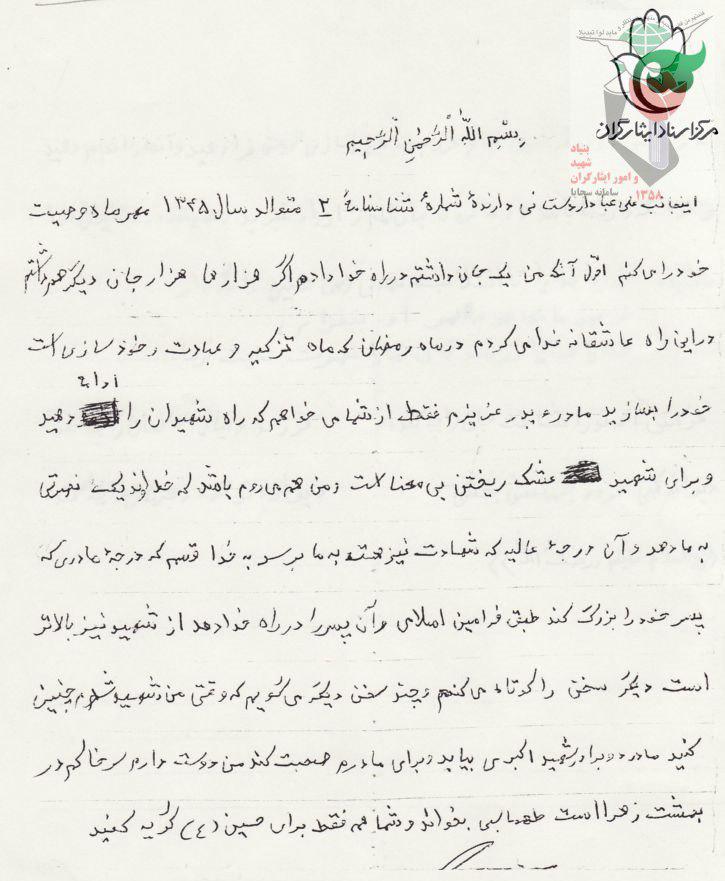 مرکز اسناد ایثارگران
بنیاد
شهید
و امور ایثارگران
سامانه سجایا
۱۳۵۸
بسم الله الرحمن الرحیم
اینجانب علی عباد اروستانی دارندهٔ شمارهٔ شناسنامهٔ ۲ متوالد سال ۱۳۴۵ مهر ماه وصیت
خود را می کنم اول آنکه من یک جان داشتم در راه خدا دادم اگر هزارها هزار جان دیگر هم داشتم
در این راه عاشقانه فدا می کردم در ماه رمضان که ماه تزکیه و عبادت و خود سازی است
ادامه
خود را بسازید مادر و پدر عزیزم فقط از شما می خواهم که راه شهیدان را دهید
و برای شهید عشک ریختن بی معنا است و من هم می روم باشد که خداوند یک نصرتی
به ما دهد و آن درجهٔ عالیه که شهادت نیز هست به ما برسد به خدا قسم که درجهٔ مادری که
پسر خود را بزرگ کند طبق فرامین اسلامی و آن پسر را در راه خدا دهد از شهید نیز بالاتر
است دیگر سخن را کوتاه می کنم و چند سخن دیگر می گویم که وقتی من شهید شدم چنین
کنید مادر و برادر شهید اکبری بیاید و برای مادرم صحبت کند من دوست دارم سر خاکم در
بهشت زهرا است طهماسبی بخواند و شما همه فقط برای حسین (ع) گریه کنید